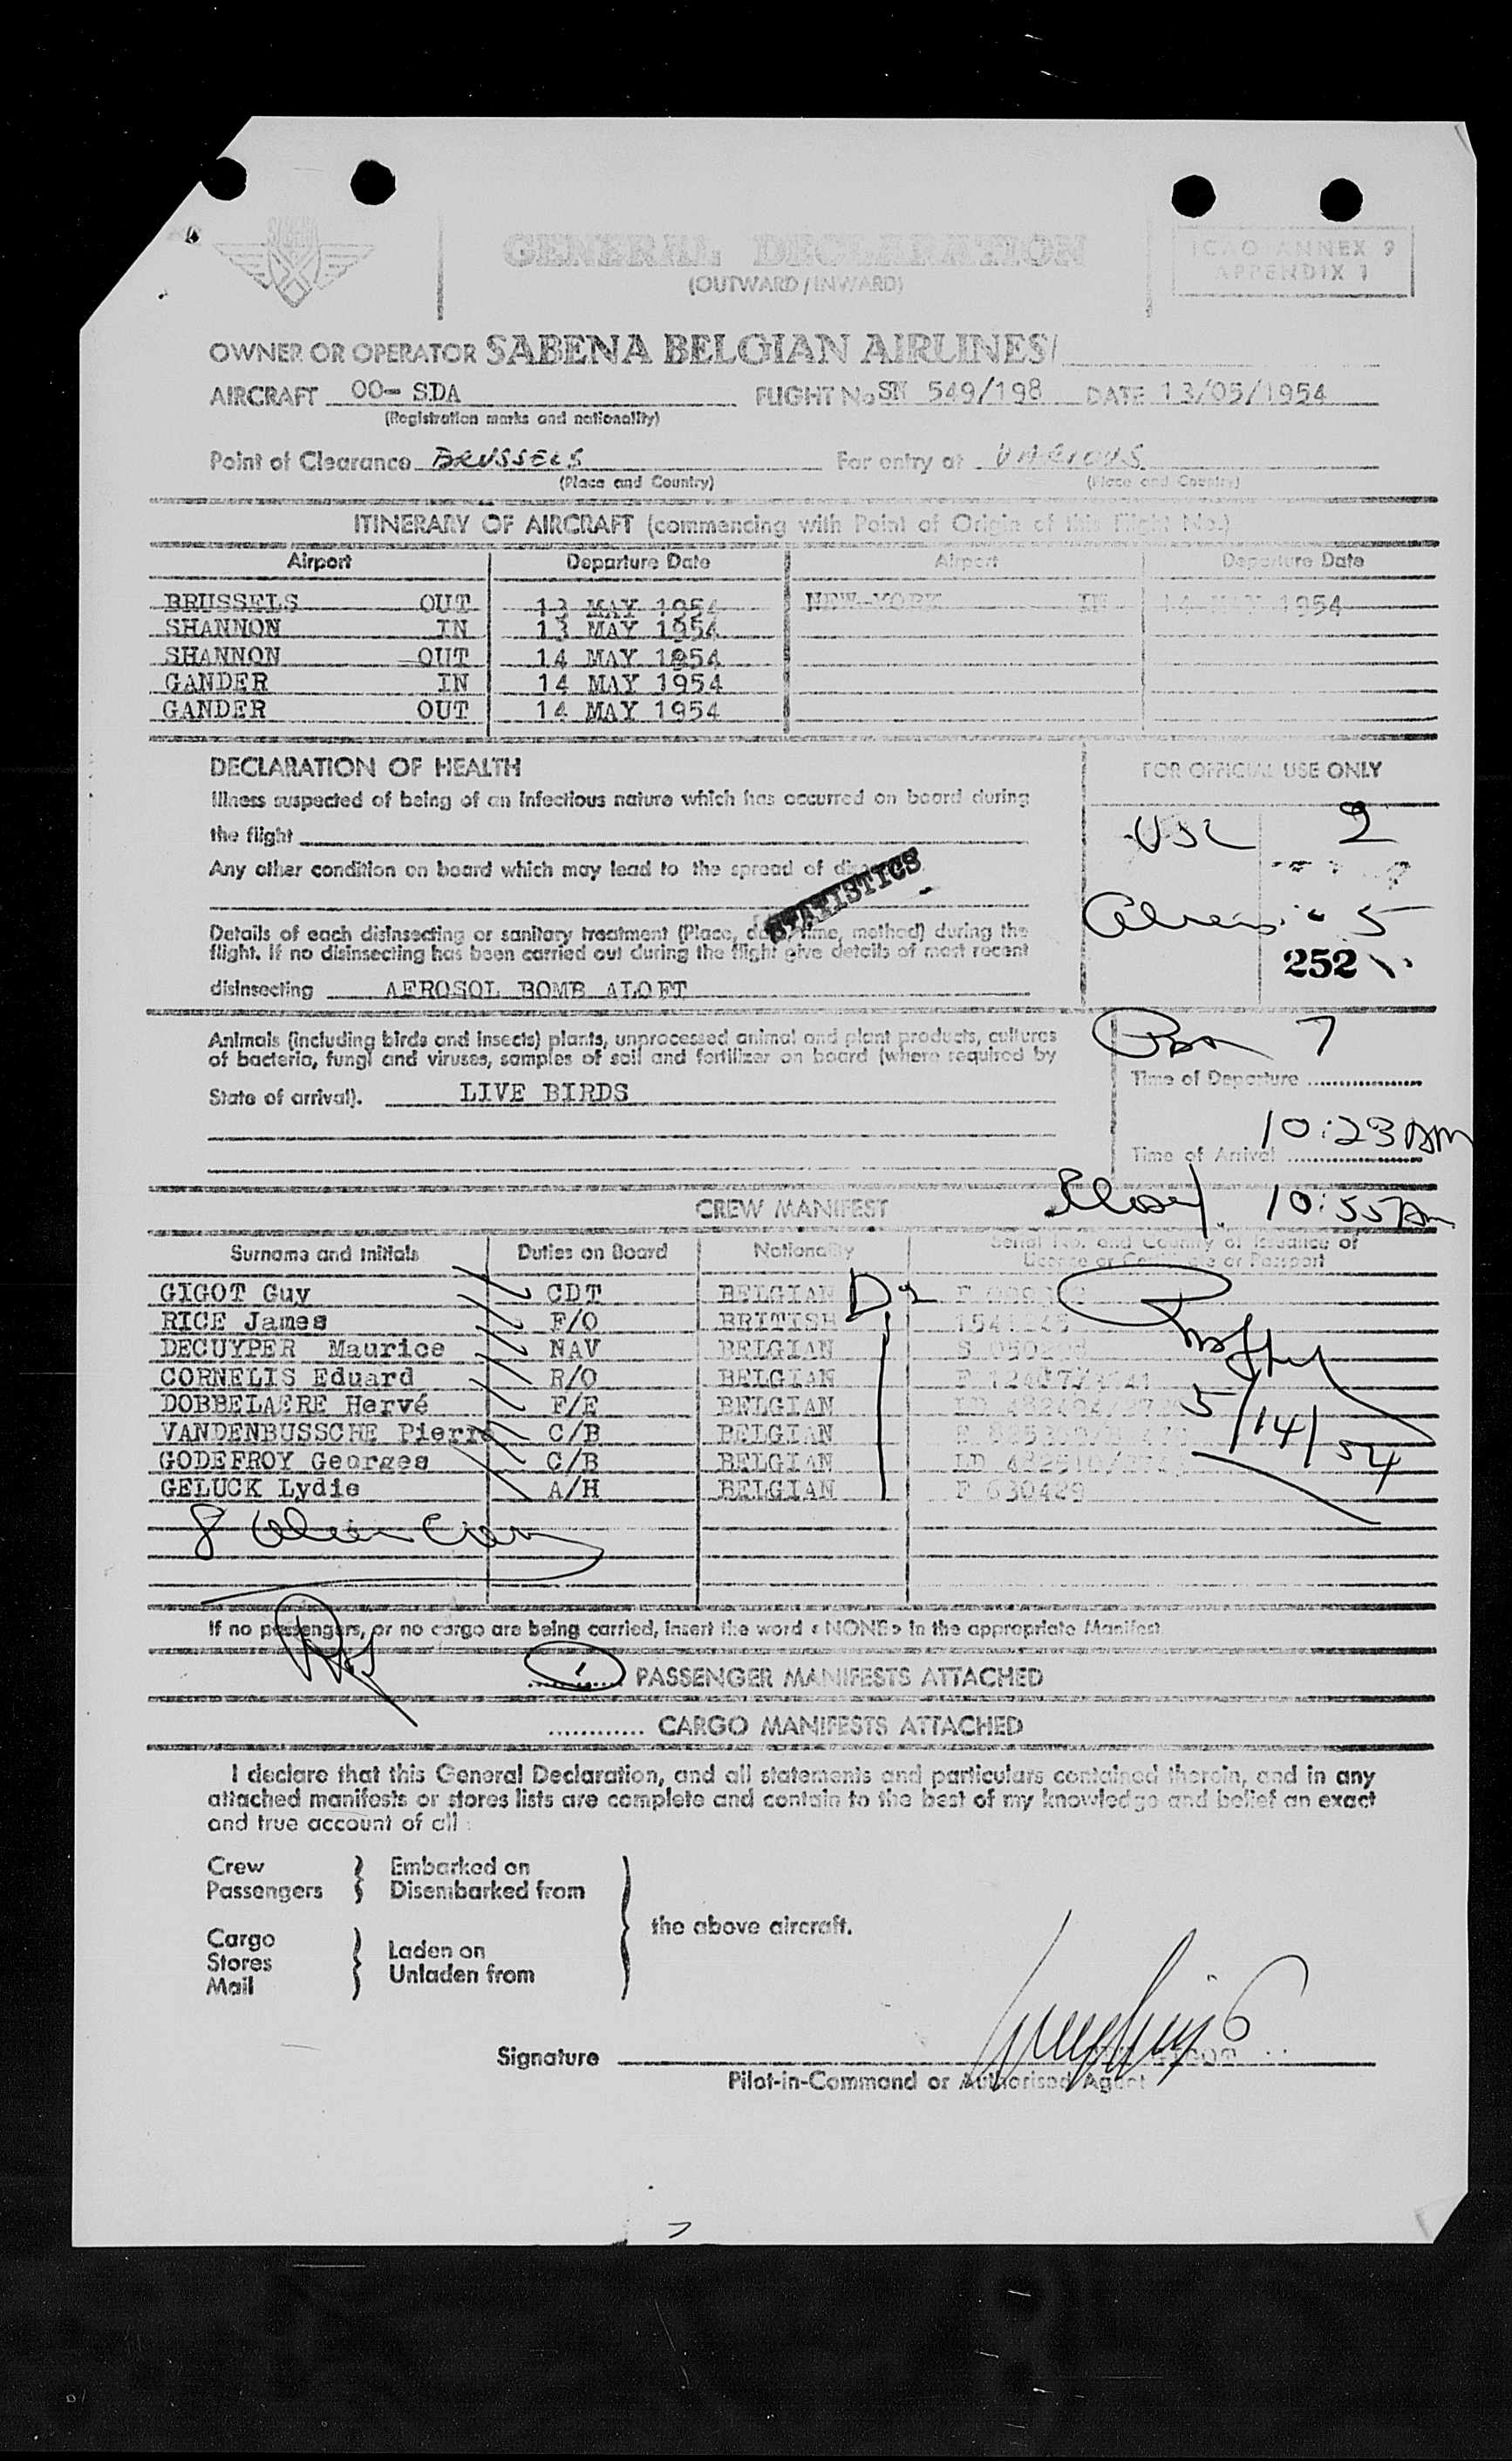 SABENA
GENERAL DECLARATION
(OUTWARD / INWARD)
ICAO ANNEX 9
APPENDIX 1
OWNER OR OPERATOR SABENA BELGIAN AIRLINES/
AIRCRAFT OO- SDA FLIGHT No SN 549/198 DATE 13/05/1954
(Registration marks and nationality)
Point of Clearance BRUSSELS For entry at VARIOUS
(Place and Country) (Place and Country)
ITINERARY OF AIRCRAFT (commencing with Point of Origin of this Flight No.)
Airport Departure Date Airport Departure Date
BRUSSELS OUT 13 MAY 1954 NEW-YORK IN 14 MAY 1954
SHANNON IN 13 MAY 1954
SHANNON OUT 14 MAY 1954
GANDER IN 14 MAY 1954
GANDER OUT 14 MAY 1954
DECLARATION OF HEALTH
Illness suspected of being of an infectious nature which has occurred on board during
the flight
Any other condition on board which may lead to the spread of
STATISTICS
Details of each disinsecting or sanitary treatment (Place, date, time, method) during the
flight. If no disinsecting has been carried out during the flight give details of most recent
disinsecting AEROSOL BOMB ALOFT
FOR OFFICIAL USE ONLY
USC 2
Aliens 5
252
7
Animals (including birds and insects) plants, unprocessed animal and plant products, cultures
of bacteria, fungi and viruses, samples of soil and fertilizer on board (where required by
State of arrival). LIVE BIRDS
Time of Departure
Time of Arrival 10:23 AM
10:55 Am
CREW MANIFEST
Surname and Initials Duties on Board Nationality Serial No. and Country of Issuance of
Licence or Certificate or Passport
GIGOT Guy CDT BELGIAN
RICE James F/O BRITISH
DECUYPER Maurice NAV BELGIAN
CORNELIS Eduard R/O BELGIAN
DOBBELAERE Hervé F/E BELGIAN
VANDENBUSSCHE Pierre C/B BELGIAN
GODEFROY Georges C/B BELGIAN
GELUCK Lydie A/H BELGIAN F 630429
5/14/54
8 Alien Crew
If no passengers, or no cargo are being carried, insert the word « NONE » in the appropriate Manifest.
1 PASSENGER MANIFESTS ATTACHED
............ CARGO MANIFESTS ATTACHED
I declare that this General Declaration, and all statements and particulars contained therein, and in any
attached manifests or stores lists are complete and contain to the best of my knowledge and belief an exact
and true account of all :
Crew
Passengers
Embarked on
Disembarked from
Cargo
Stores
Mail
Laden on
Unladen from
the above aircraft.
Signature
Pilot-in-Command or Authorised Agent